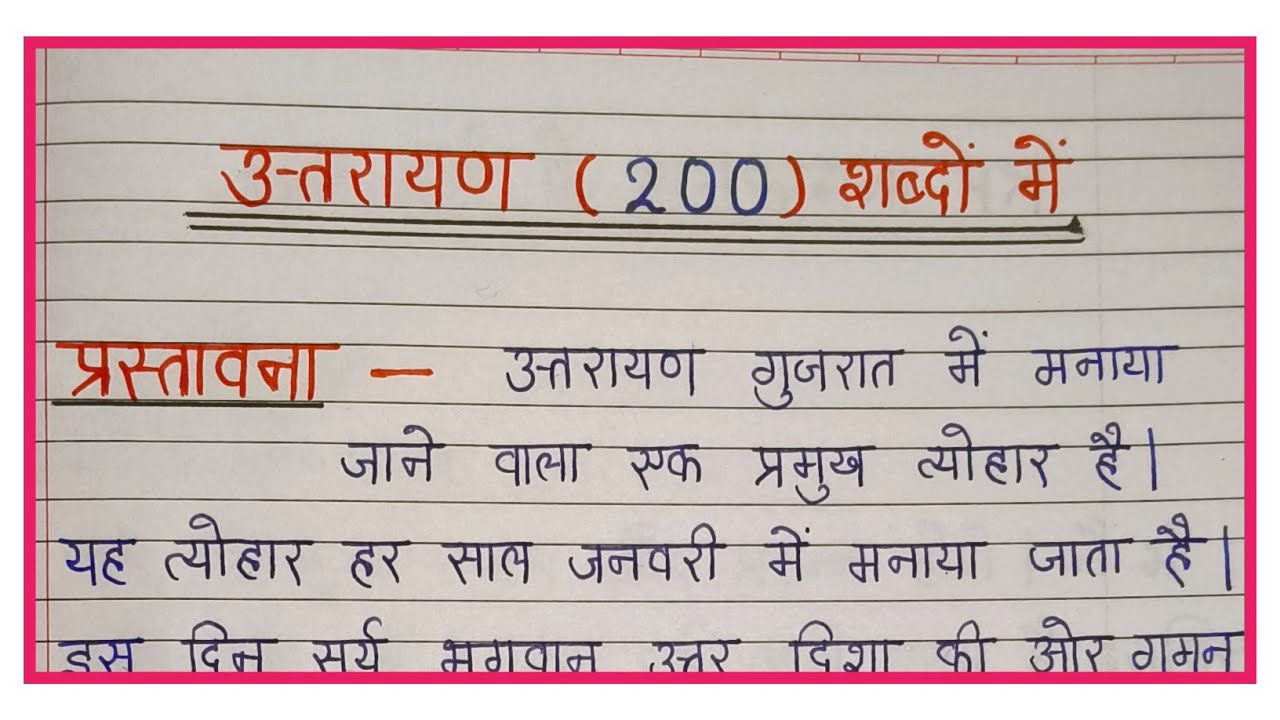 उत्तरायण (200) शब्दों में
प्रस्तावना — उत्तरायण गुजरात में मनाया
जाने वाला एक प्रमुख त्योहार है।
यह त्योहार हर साल जनवरी में मनाया जाता है।
इस दिन सूर्य भगवान उत्तर दिशा की ओर गमन